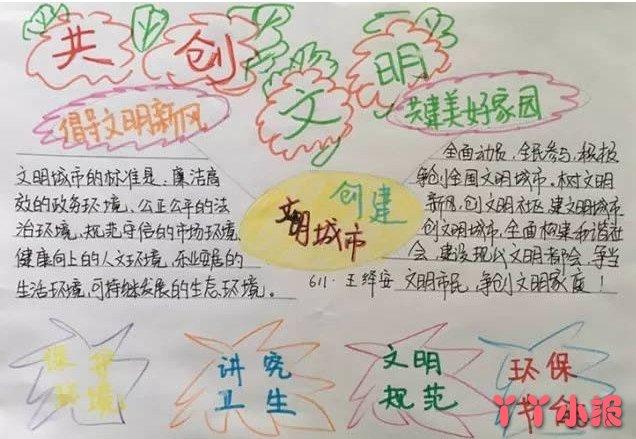 共创文明
倡导文明新风
共建美好家园
文明城市的标准是：廉洁高
效的政务环境、公正公平的法
治环境、规范守信的市场环境、
健康向上的人文环境、乐业安居的
生活环境,可持续发展的生态环境。
创建
文明城市
全面动员,全民参与,积极
争创全国文明城市。树文明
新风,创文明社区,建文明城市
创文明城市,全面构建和谐社
会,建设现代文明都会,争当
文明市民,争创文明家庭！
611·王绎安
保护
环境
讲究
卫生
文明
规范
环保
节
丫丫小报